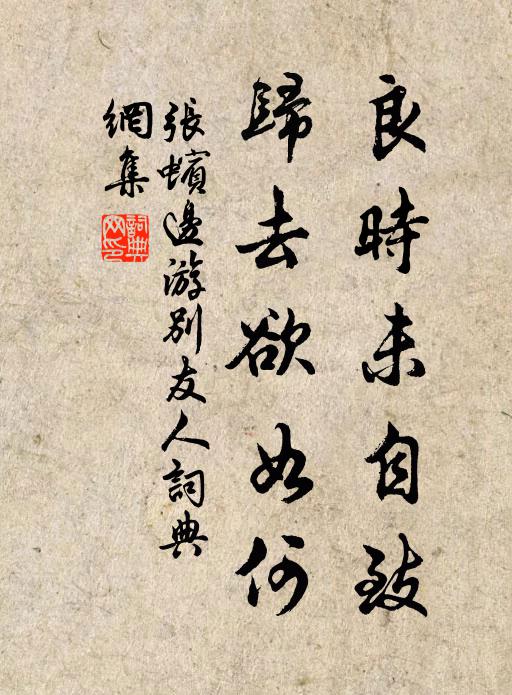 良時未自致
歸去欲如何
張蠙邊游別友人詞典
網集
詞典
网印